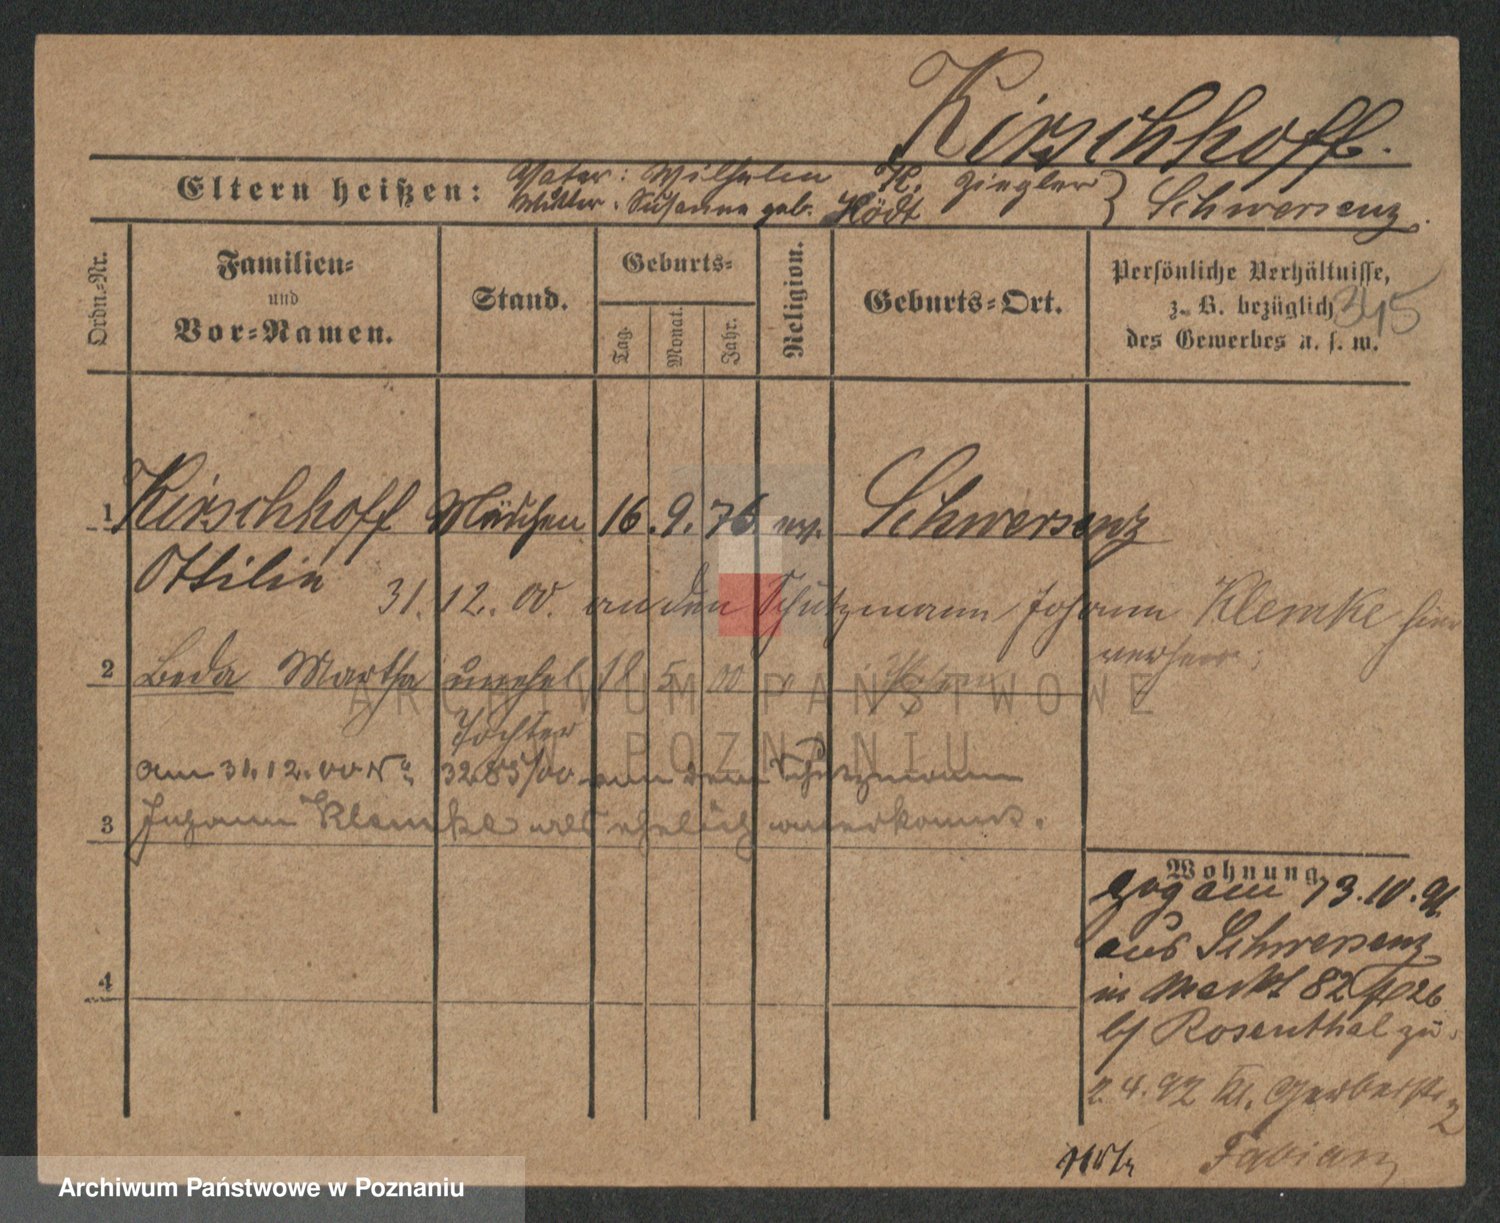 Kirschhoff.
Eltern heißen: Vater: Wilhelm K. Ziegler } Schwersenz.
Mutter: Susanne geb. Hödt
Ordn.-Nr.
Familien-
und
Vor-Namen.
Stand.
Geburts-
Tag.
Monat.
Jahr.
Religion.
Geburts-Ort.
Persönliche Verhältnisse,
z. B. bezüglich
des Gewerbes u. s. w.
345
1 Kirschhoff Mädchen 16. 9. 76 ev. Schwersenz
Ottilie
31. 12. 00. an den Schutzmann Johann Klemke hier
verheir:
2 Beda Martha unehel 18 5 00
Tochter
am 31.12.00 No 3283/00 von dem Schutzmann
3 Johann Klemke als ehelich anerkannt.
4
Wohnung.
Zog am 13.10.91
aus Schwersenz
in Markt 82
b/ Rosenthal zu.
2.4.92 Kl. Gerberstr 2
Fabian
ARCHIWUM PAŃSTWOWE
W POZNANIU
Archiwum Państwowe w Poznaniu